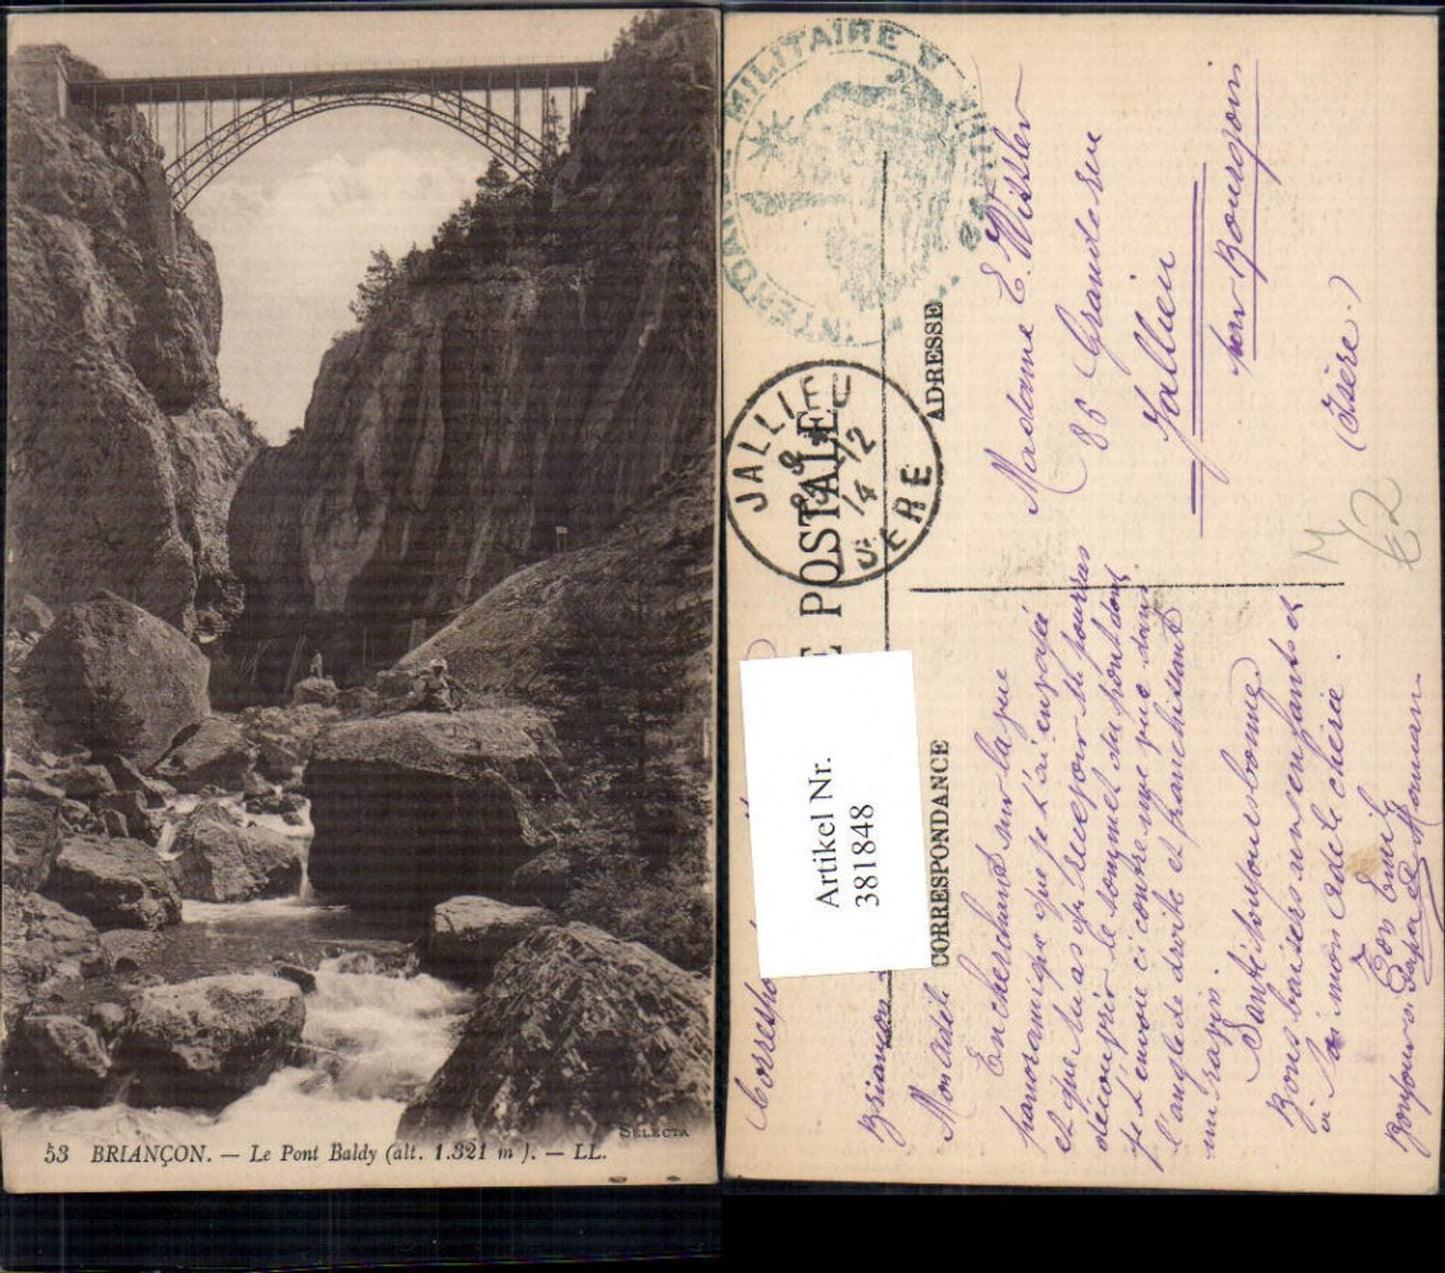 53 BRIANÇON. — Le Pont Baldy (alt. 1.321 m). — LL.
SELECTA
MILITAIRE
JALLIEU
ISERE
POSTALE
ADRESSE
CORRESPONDANCE
Artikel Nr.
381848
Madame E. Wissler
86 Grande rue
Jallieu
par Bourgoin
(Isère.)
M
62
Briançon
Mon Adèle
En cherchant sur la vue
panoramique que je t'ai envoyée
et que tu as pu recevoir tu pourras
découvrir le sommet du pont dont
je t'envoie ci contre une vue dans
l'angle de droite et franchissant
un ravin.
Santé toujours bonne.
Bons baisers aux enfants et
à toi mon Adèle chérie.
Ton Emile
Bonjour à Papa et Maman.